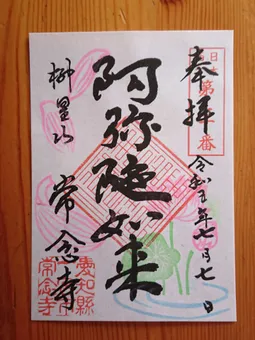 奉拝
令和五年七月七日
阿弥陀如来
柳星山
常念寺
愛知縣
常念寺